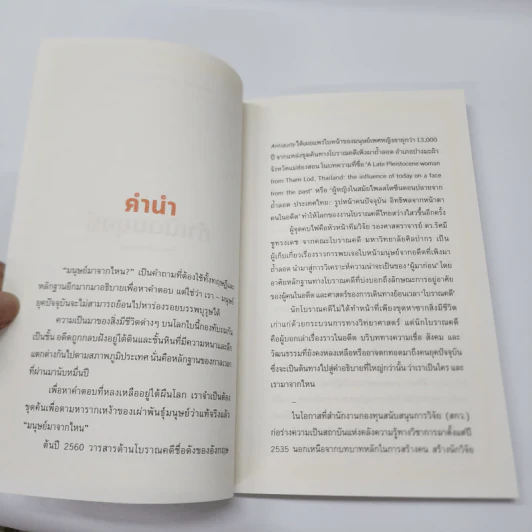 คำนำ
“มนุษย์มาจากไหน?” เป็นคำถามที่ต้องใช้ทั้งทฤษฎีและ
หลักฐานอีกมากมาอธิบายเพื่อหาคำตอบ แต่ใช่ว่า เรา – มนุษย์
ยุคปัจจุบันจะไม่สามารถย้อนไปหาร่องรอยบรรพบุรุษได้
ความเป็นมาของสิ่งมีชีวิตต่างๆ บนโลกใบนี้กองทับถมกัน
เป็นชั้น อดีตถูกกลบฝังอยู่ใต้ดินและชั้นหินที่มีความหนาและลึก
แตกต่างกันไปตามสภาพภูมิประเทศ นั่นคือหลักฐานของกาลเวลา
ที่ผ่านมานับหมื่นปี
เพื่อหาคำตอบที่หลงเหลืออยู่ใต้ผืนโลก เราจำเป็นต้อง
ขุดค้นเพื่อตามหารากเหง้าของเผ่าพันธุ์มนุษย์ว่าแท้จริงแล้ว
“มนุษย์มาจากไหน”
ต้นปี 2560 วารสารด้านโบราณคดีชื่อดังของอังกฤษ
Antiquity ได้เผยแพร่ใบหน้าของมนุษย์เพศหญิงอายุกว่า 13,000
ปี จากแหล่งขุดค้นทางโบราณคดีเพิงผาถ้ำลอด อำเภอปางมะผ้า
จังหวัดแม่ฮ่องสอน ในบทความที่ชื่อ “A Late Pleistocene woman
from Tham Lod, Thailand: the influence of today on a face
from the past” หรือ “ผู้หญิงในสมัยไพลสโตซีนตอนปลายจาก
ถ้ำลอด ประเทศไทย: รูปหน้าคนปัจจุบัน อิทธิพลจากหน้าตา
คนในอดีต” ทำให้โลกของงานโบราณคดีไทยสว่างไสวขึ้นอีกครั้ง
ผู้จุดคบไฟคือหัวหน้าทีมวิจัย รองศาสตราจารย์ ดร.รัศมี
ชูทรงเดช จากคณะโบราณคดี มหาวิทยาลัยศิลปากร เป็น
ผู้เก็บเกี่ยวเรื่องราวการพบเจอใบหน้ามนุษย์จากอดีตที่เพิงผา
ถ้ำลอด นำมาสู่การวิเคราะห์ความน่าจะเป็นของ “ผู้มาก่อน” โดย
อาศัยหลักฐานทางโบราณคดีที่บ่งบอกถึงลักษณะการอยู่อาศัย
ของผู้คนในอดีต และศาสตร์ของการเดินทางย้อนเวลา “โบราณคดี”
นักโบราณคดีไม่ได้ทำหน้าที่เพียงขุดหาซากสิ่งมีชีวิต
เก่าแก่ด้วยกระบวนการทางวิทยาศาสตร์ แต่นักโบราณคดี
คือผู้บอกเล่าเรื่องราวในอดีต บริบททางความเชื่อ สังคม และ
วัฒนธรรมที่ยังคงหลงเหลือหรืออาจตกทอดมาถึงคนยุคปัจจุบัน
ซึ่งจะเป็นต้นทางไปสู่คำอธิบายที่ใหญ่กว่านั้น ว่าเราเป็นใคร และ
เรามาจากไหน
–
ในโอกาสที่สำนักงานกองทุนสนับสนุนการวิจัย (สกว.)
ก่อร่างความเป็นสถาบันแห่งคลังความรู้ทางวิชาการมาตั้งแต่ปี
2535 นอกเหนือจากบทบาทหลักในการสร้างคน สร้างนักวิจัย